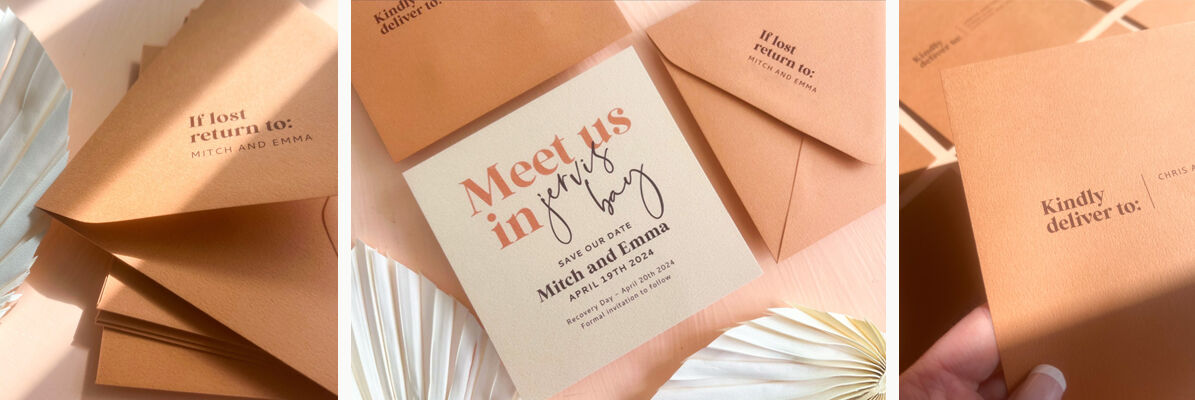 If lost
return to:
MITCH AND EMMA
Kindly
deliver to:
If lost
return to:
MITCH AND EMMA
Meet us
in jervis
bay
SAVE OUR DATE
Mitch and Emma
APRIL 19TH 2024
Recovery Day – April 20th 2024
Formal invitation to follow
Kindly
deliver to:
Kindly
deliver to:
CHRIS A